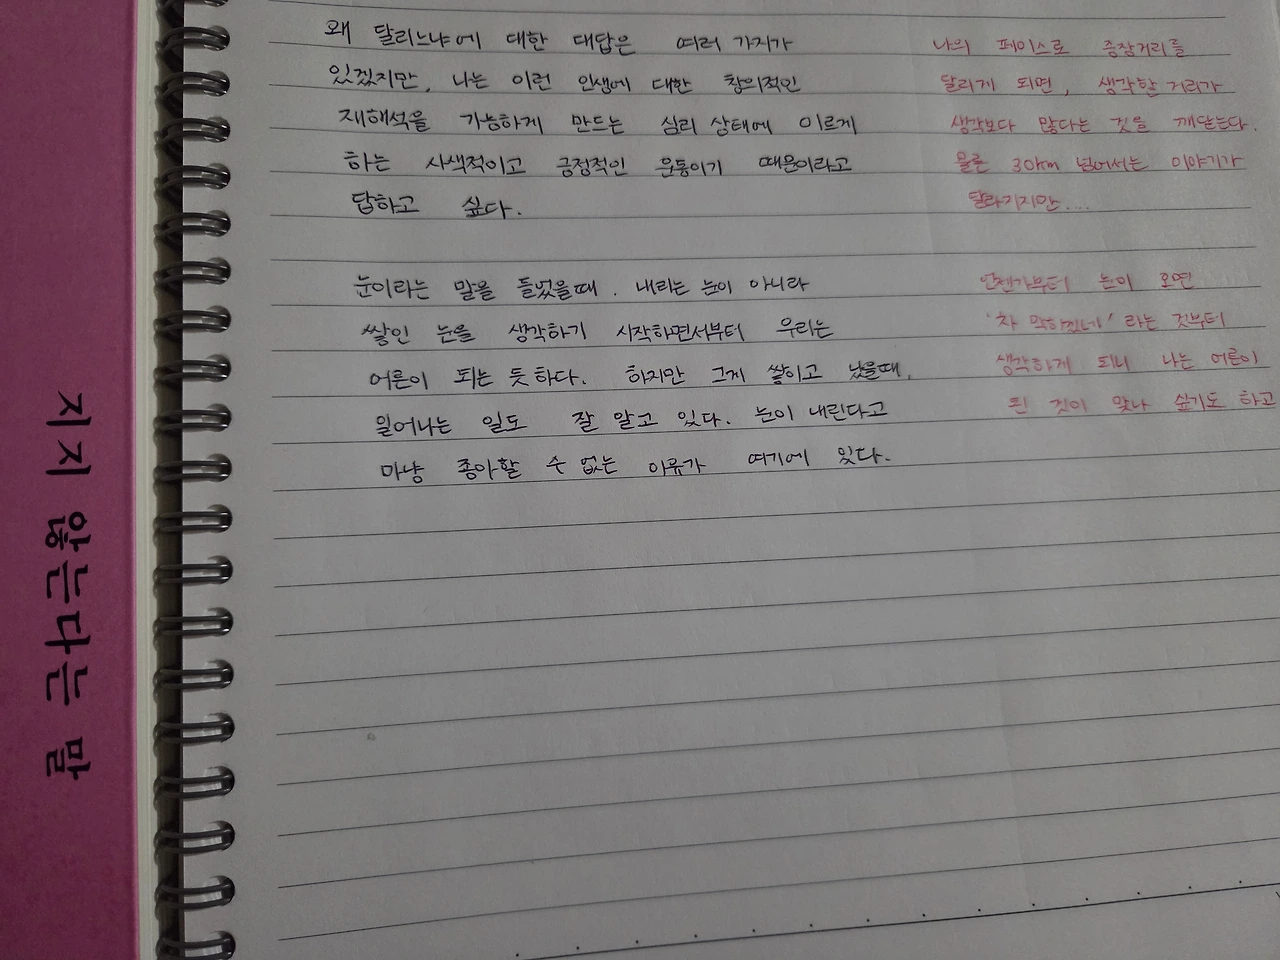 왜 달리느냐에 대한 대답은 여러 가지가
있겠지만, 나는 이런 인생에 대한 창의적인
재해석을 가능하게 만드는 심리 상태에 이르게
하는 사색적이고 긍정적인 운동이기 때문이라고
답하고 싶다.
나의 페이스로 중장거리를
달리게 되면, 생각할 거리가
생각보다 많다는 것을 깨닫는다.
물론 30km 넘어서는 이야기가
달라지지만...
눈이라는 말을 들었을때, 내리는 눈이 아니라
쌓인 눈을 생각하기 시작하면서부터 우리는
어른이 되는 듯하다. 하지만 그게 쌓이고 났을때,
일어나는 일도 잘 알고 있다. 눈이 내린다고
마냥 좋아할 수 없는 이유가 여기에 있다.
언젠가부터 눈이 오면
'차 막히겠네' 라는 것부터
생각하게 되니 나는 어른이
된 것이 맞나 싶기도 하고
지지 않는다는 말